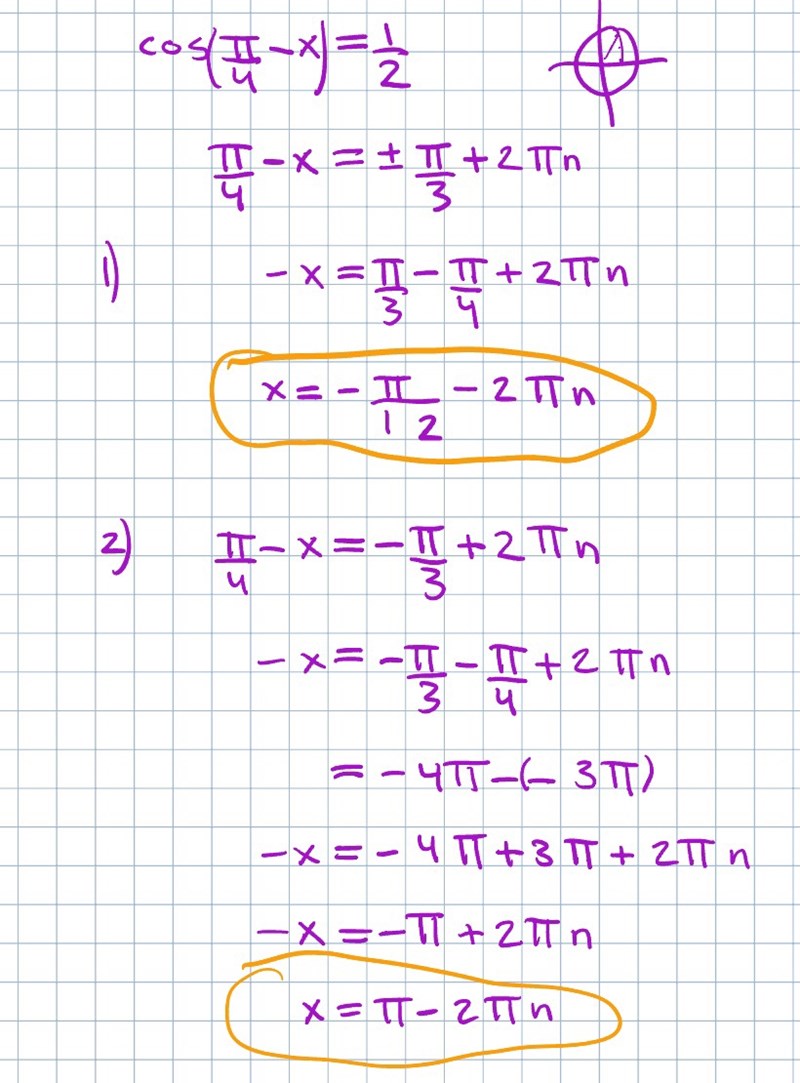 cos(π/4 - x) = 1/2
π/4 - x = ± π/3 + 2πn
1) - x = π/3 - π/4 + 2πn
x = - π/12 - 2πn
2) π/4 - x = - π/3 + 2πn
- x = - π/3 - π/4 + 2πn
= - 4π - (- 3π)
- x = - 4π + 3π + 2πn
- x = - π + 2πn
x = π - 2πn